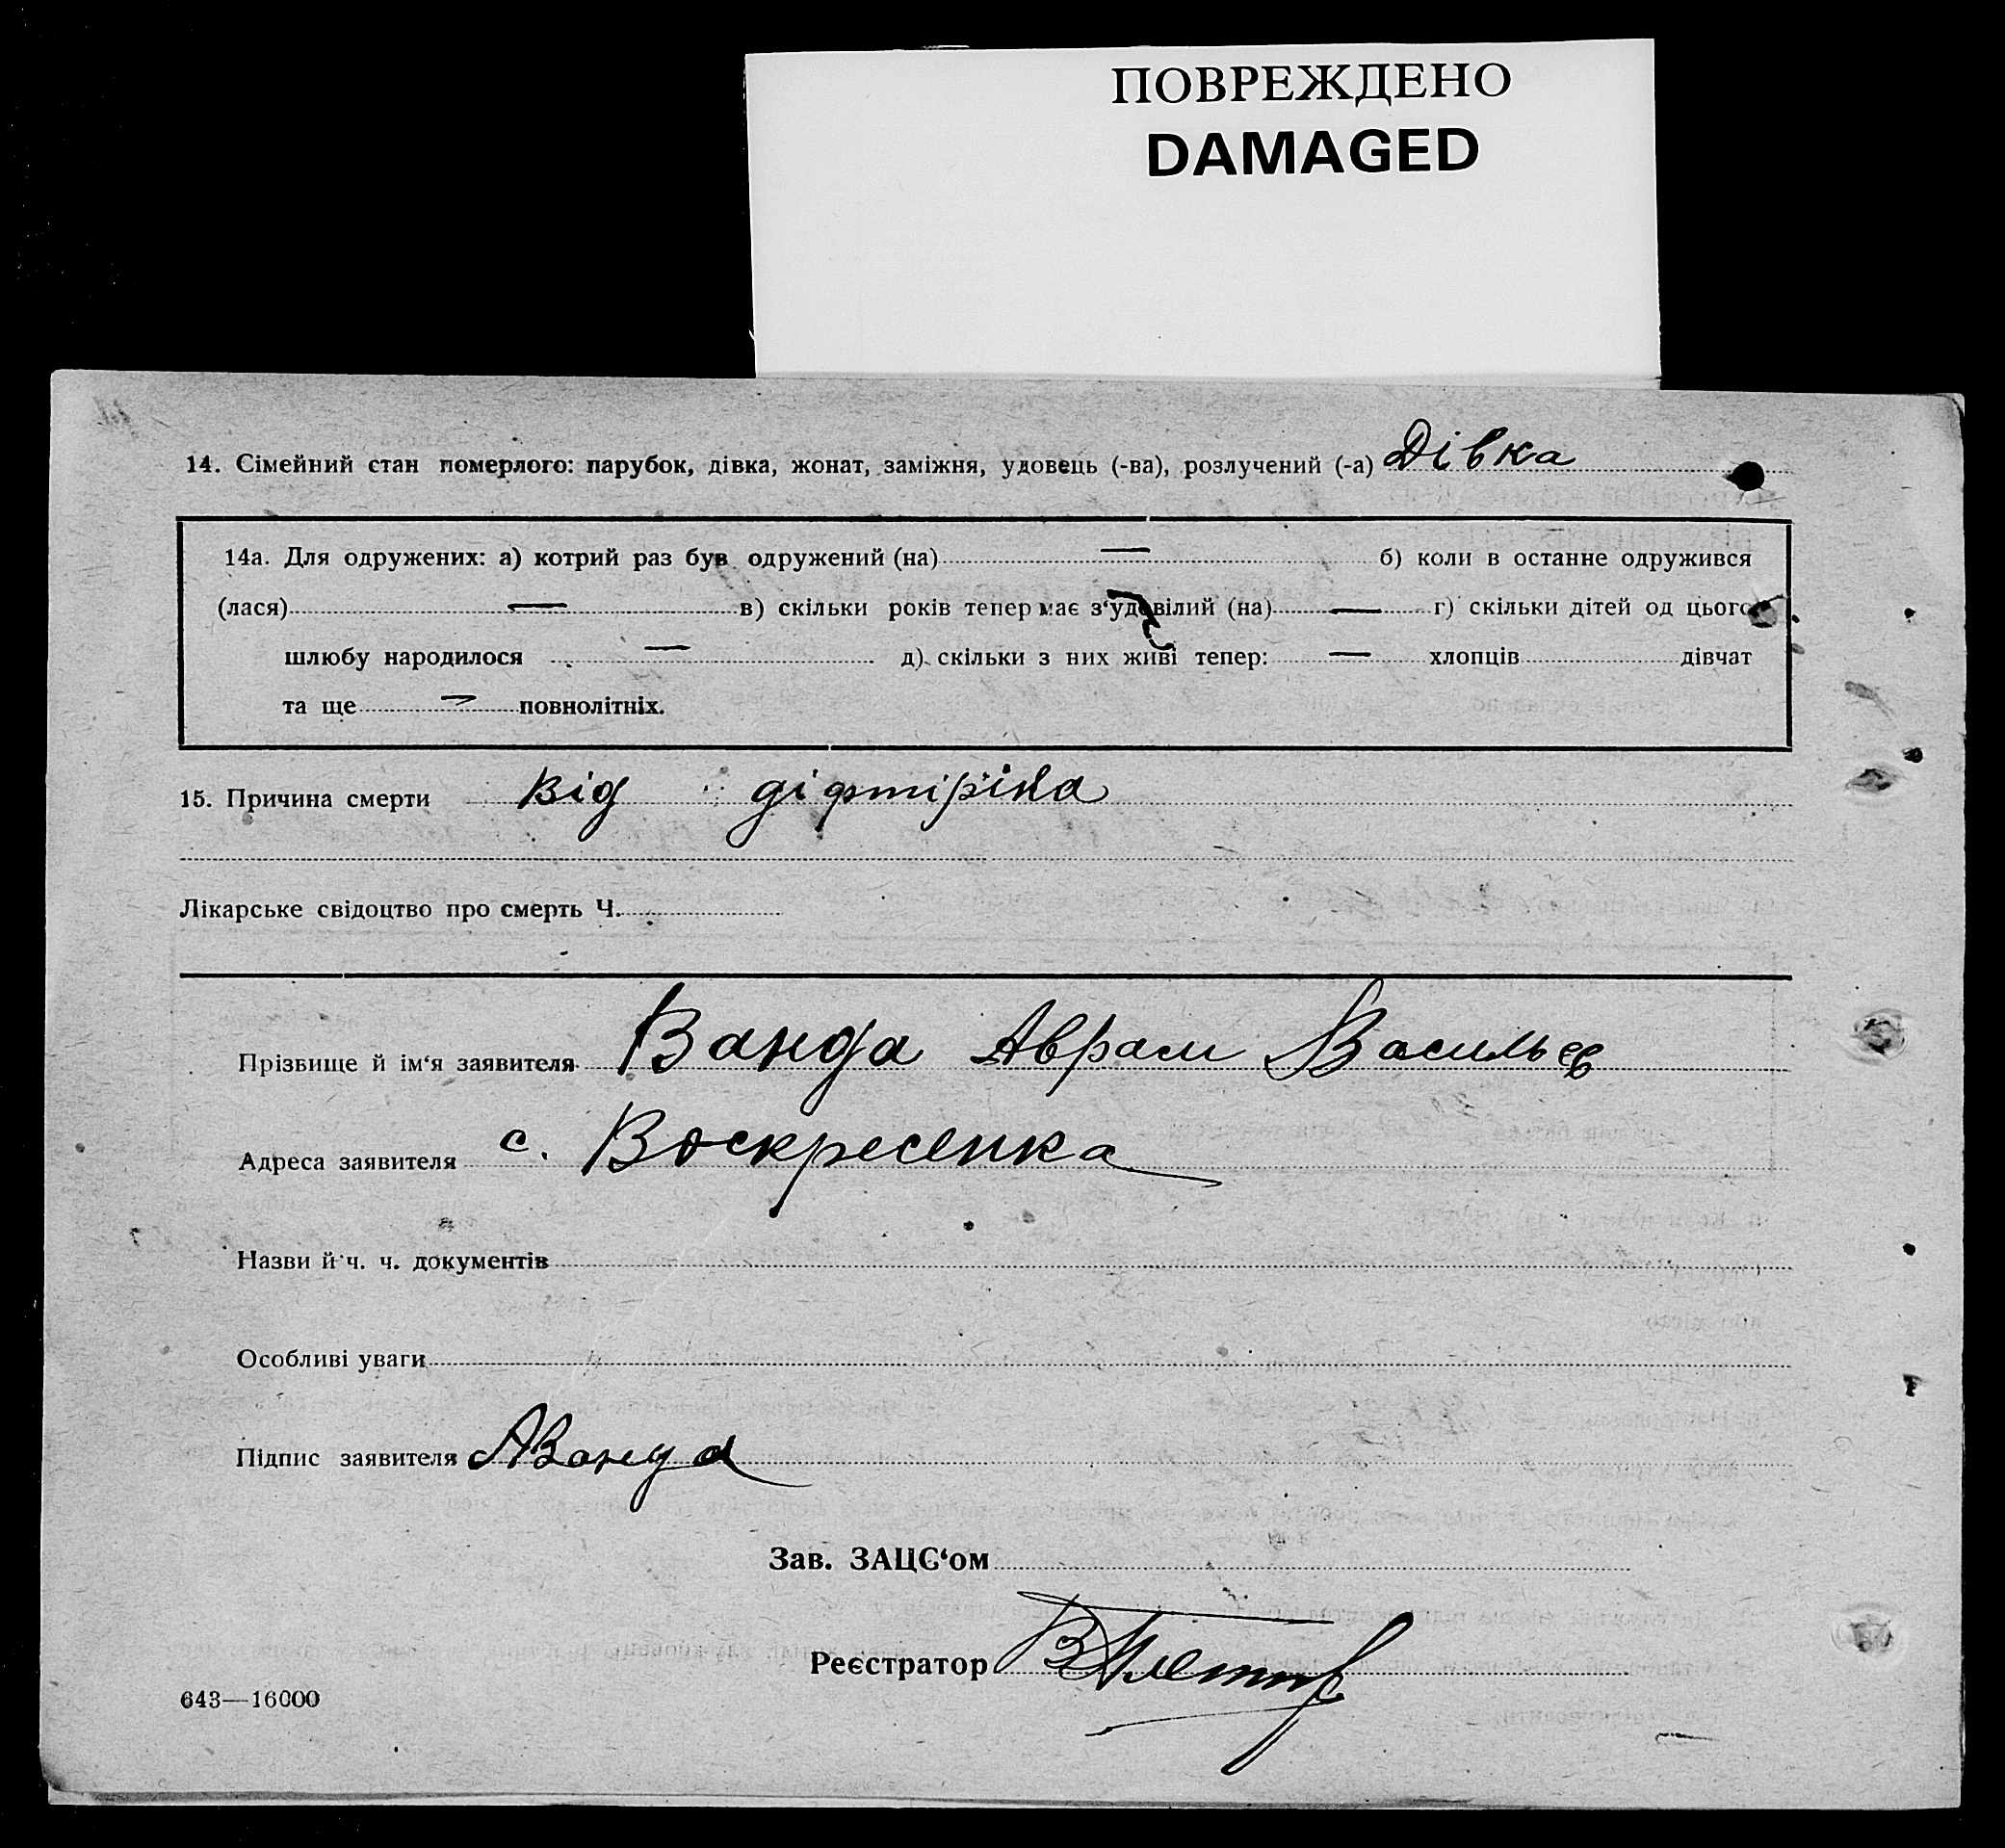 ПОВРЕЖДЕНО
DAMAGED
14. Сімейний стан померлого: парубок, дівка, жонат, заміжня, удовець (-ва), розлучений (-а) Дівка
14а. Для одружених: а) котрий раз був одружений (на) — б) коли в останнє одружився
(лася) — в) скільки років тепер має з‘удовілий (на) — г) скільки дітей од цього
шлюбу народилося — д) скільки з них живі тепер: — хлопців дівчат
та ще — повнолітніх.
15. Причина смерти Від
Лікарське свідоцтво про смерть Ч.
Прізвище й ім‘я заявителя Ванда Аврам Васильев
Адреса заявителя с. Воскресенка
Назви й ч. ч. документів
Особливі уваги
Підпис заявителя АВанда
Зав. ЗАЦС‘ом
Реєстратор
643—16000